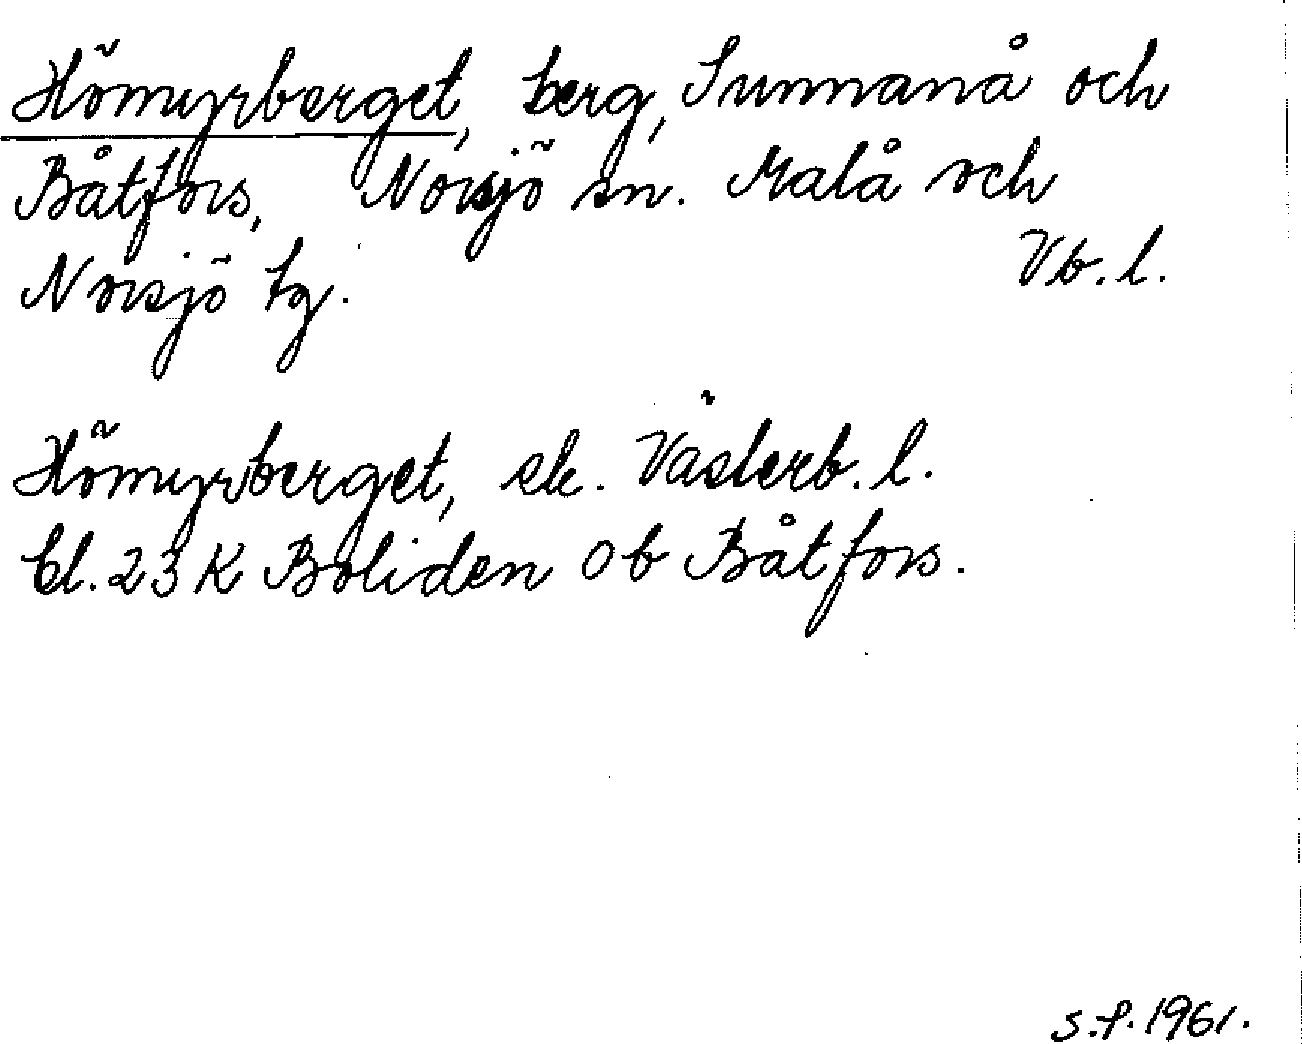 Hömyrberget, berg, Sunnanå och
Båtfors, Norsjö sn. Malå och
Norsjö tg. Vb. l.
Hömyrberget, ek. Västerb. l.
bl. 23 K Boliden Ob Båtfors.
S.P. 1961.